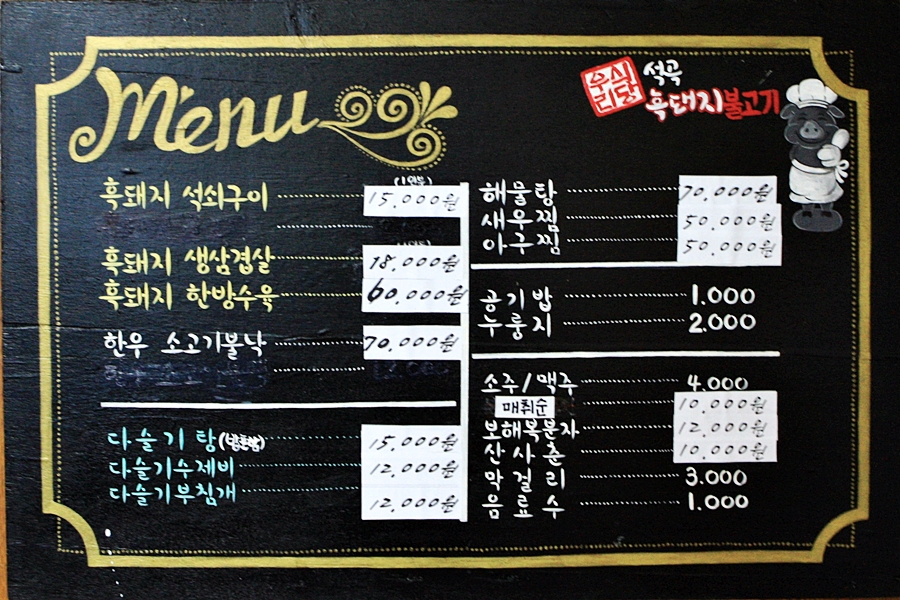 Menu
우리식당
석곡
흑돼지불고기
(1인분)
흑돼지 석쇠구이 15,000원
흑돼지 생삼겹살 18,000원
흑돼지 한방수육 60,000원
한우 소고기불낙 70,000원
다슬기탕 15,000원
다슬기수제비 12,000원
다슬기부침개 12,000원
해물탕 70,000원
새우찜 50,000원
아구찜 50,000원
공기밥 1.000
누룽지 2.000
소주/맥주 4.000
매취순 10,000원
보해복분자 12,000원
산사춘 10,000원
막걸리 3.000
음료수 1.000